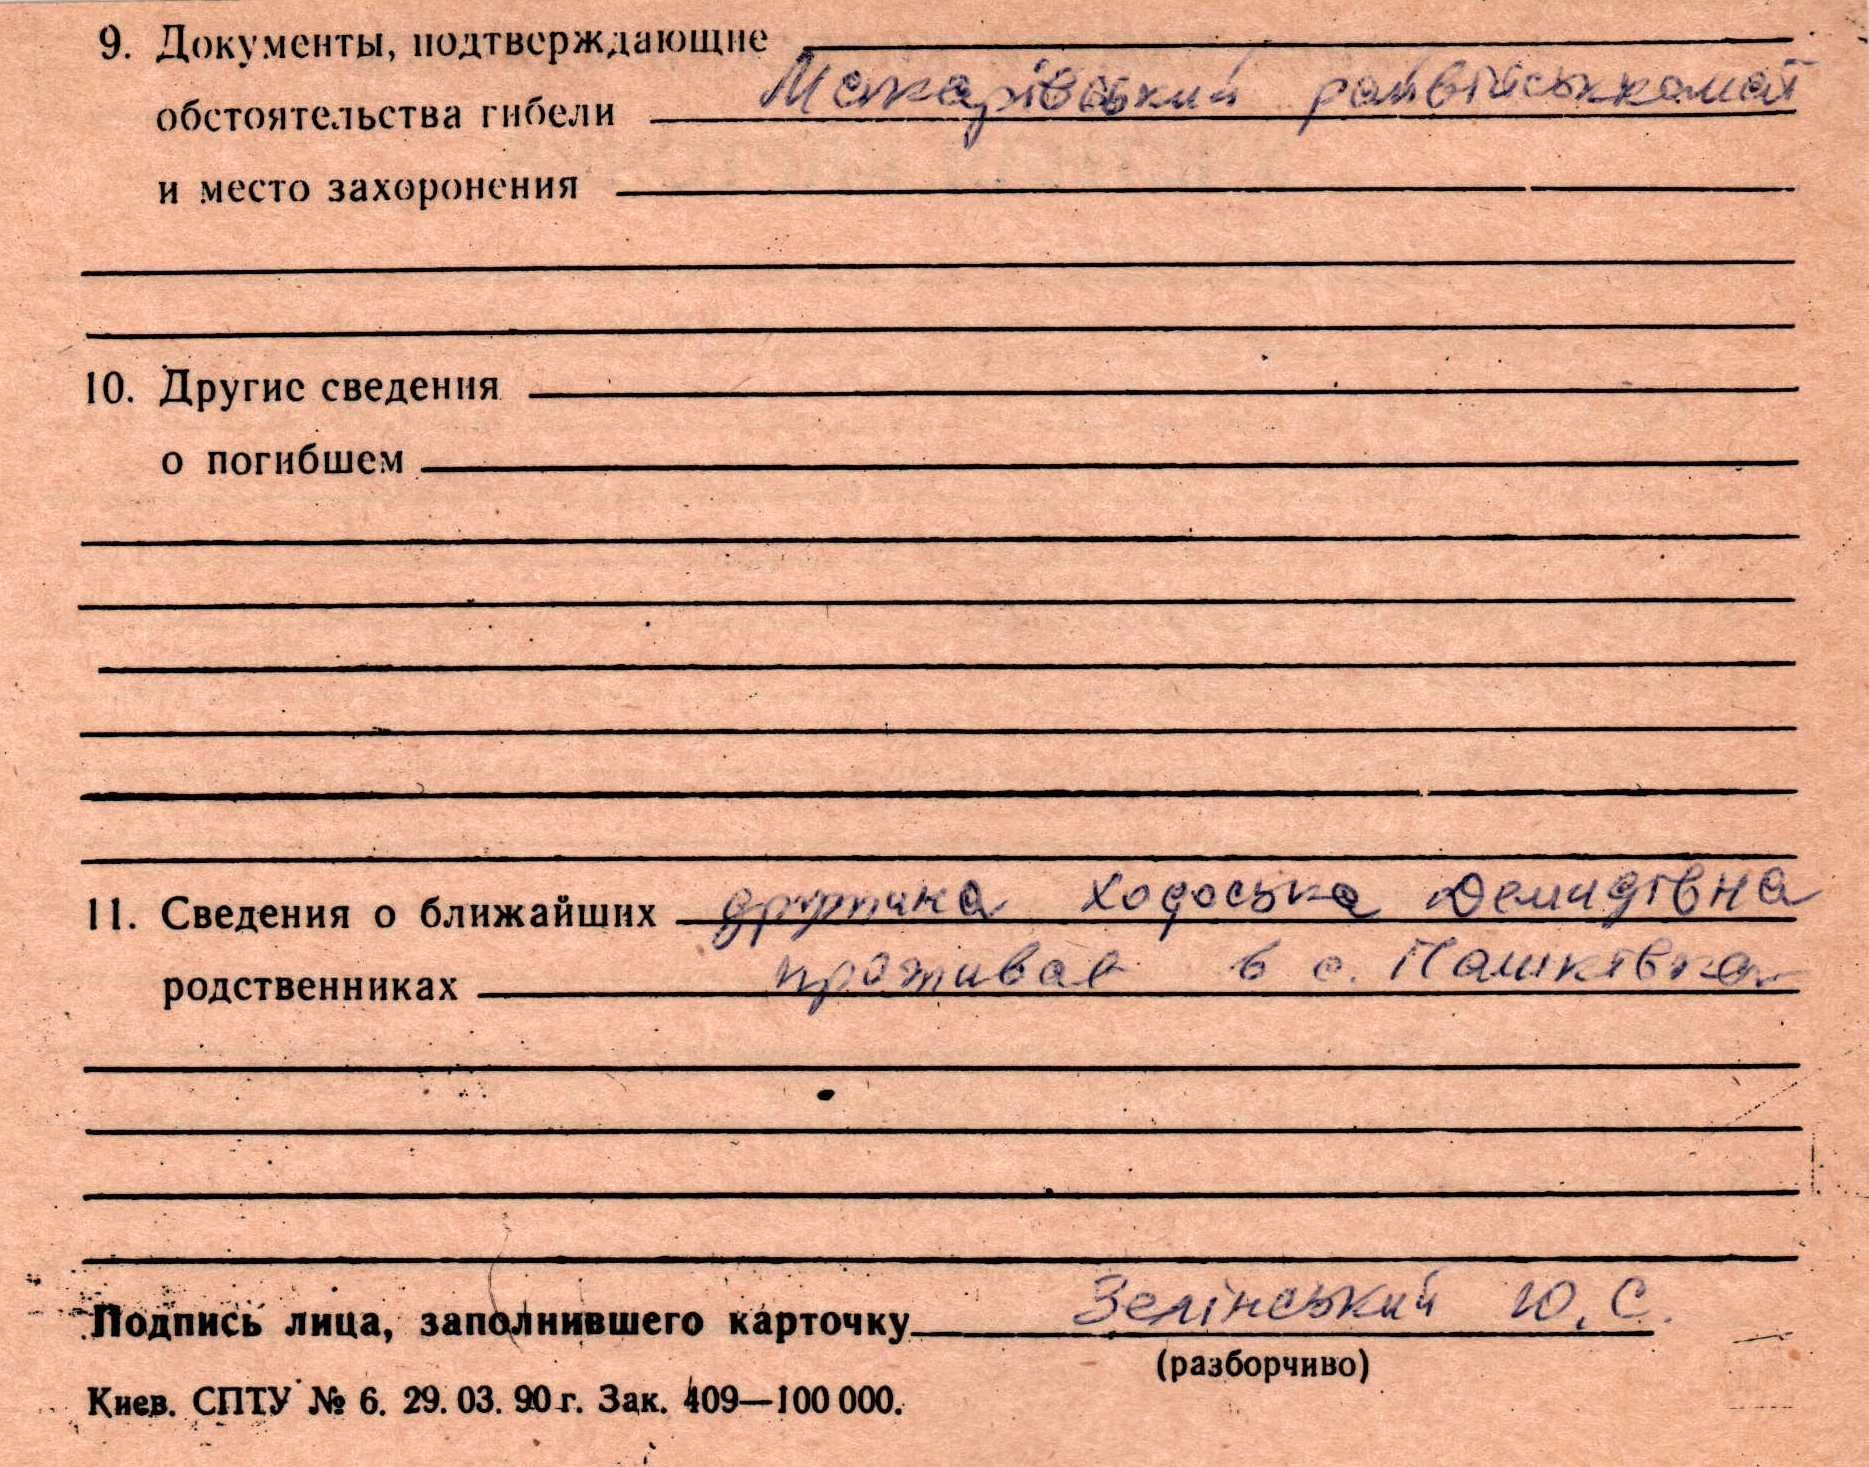 9. Документы, подтверждающие
обстоятельства гибели Макарівський райвійськкомат
и место захоронения
10. Другие сведения
о погибшем
11. Сведения о ближайших дружина Ходоська Демидівна
родственниках проживає в с. Пашківка
Подпись лица, заполнившего карточку Зелінський Ю. С.
(разборчиво)
Киев. СПТУ № 6. 29. 03. 90 г. Зак. 409—100 000.